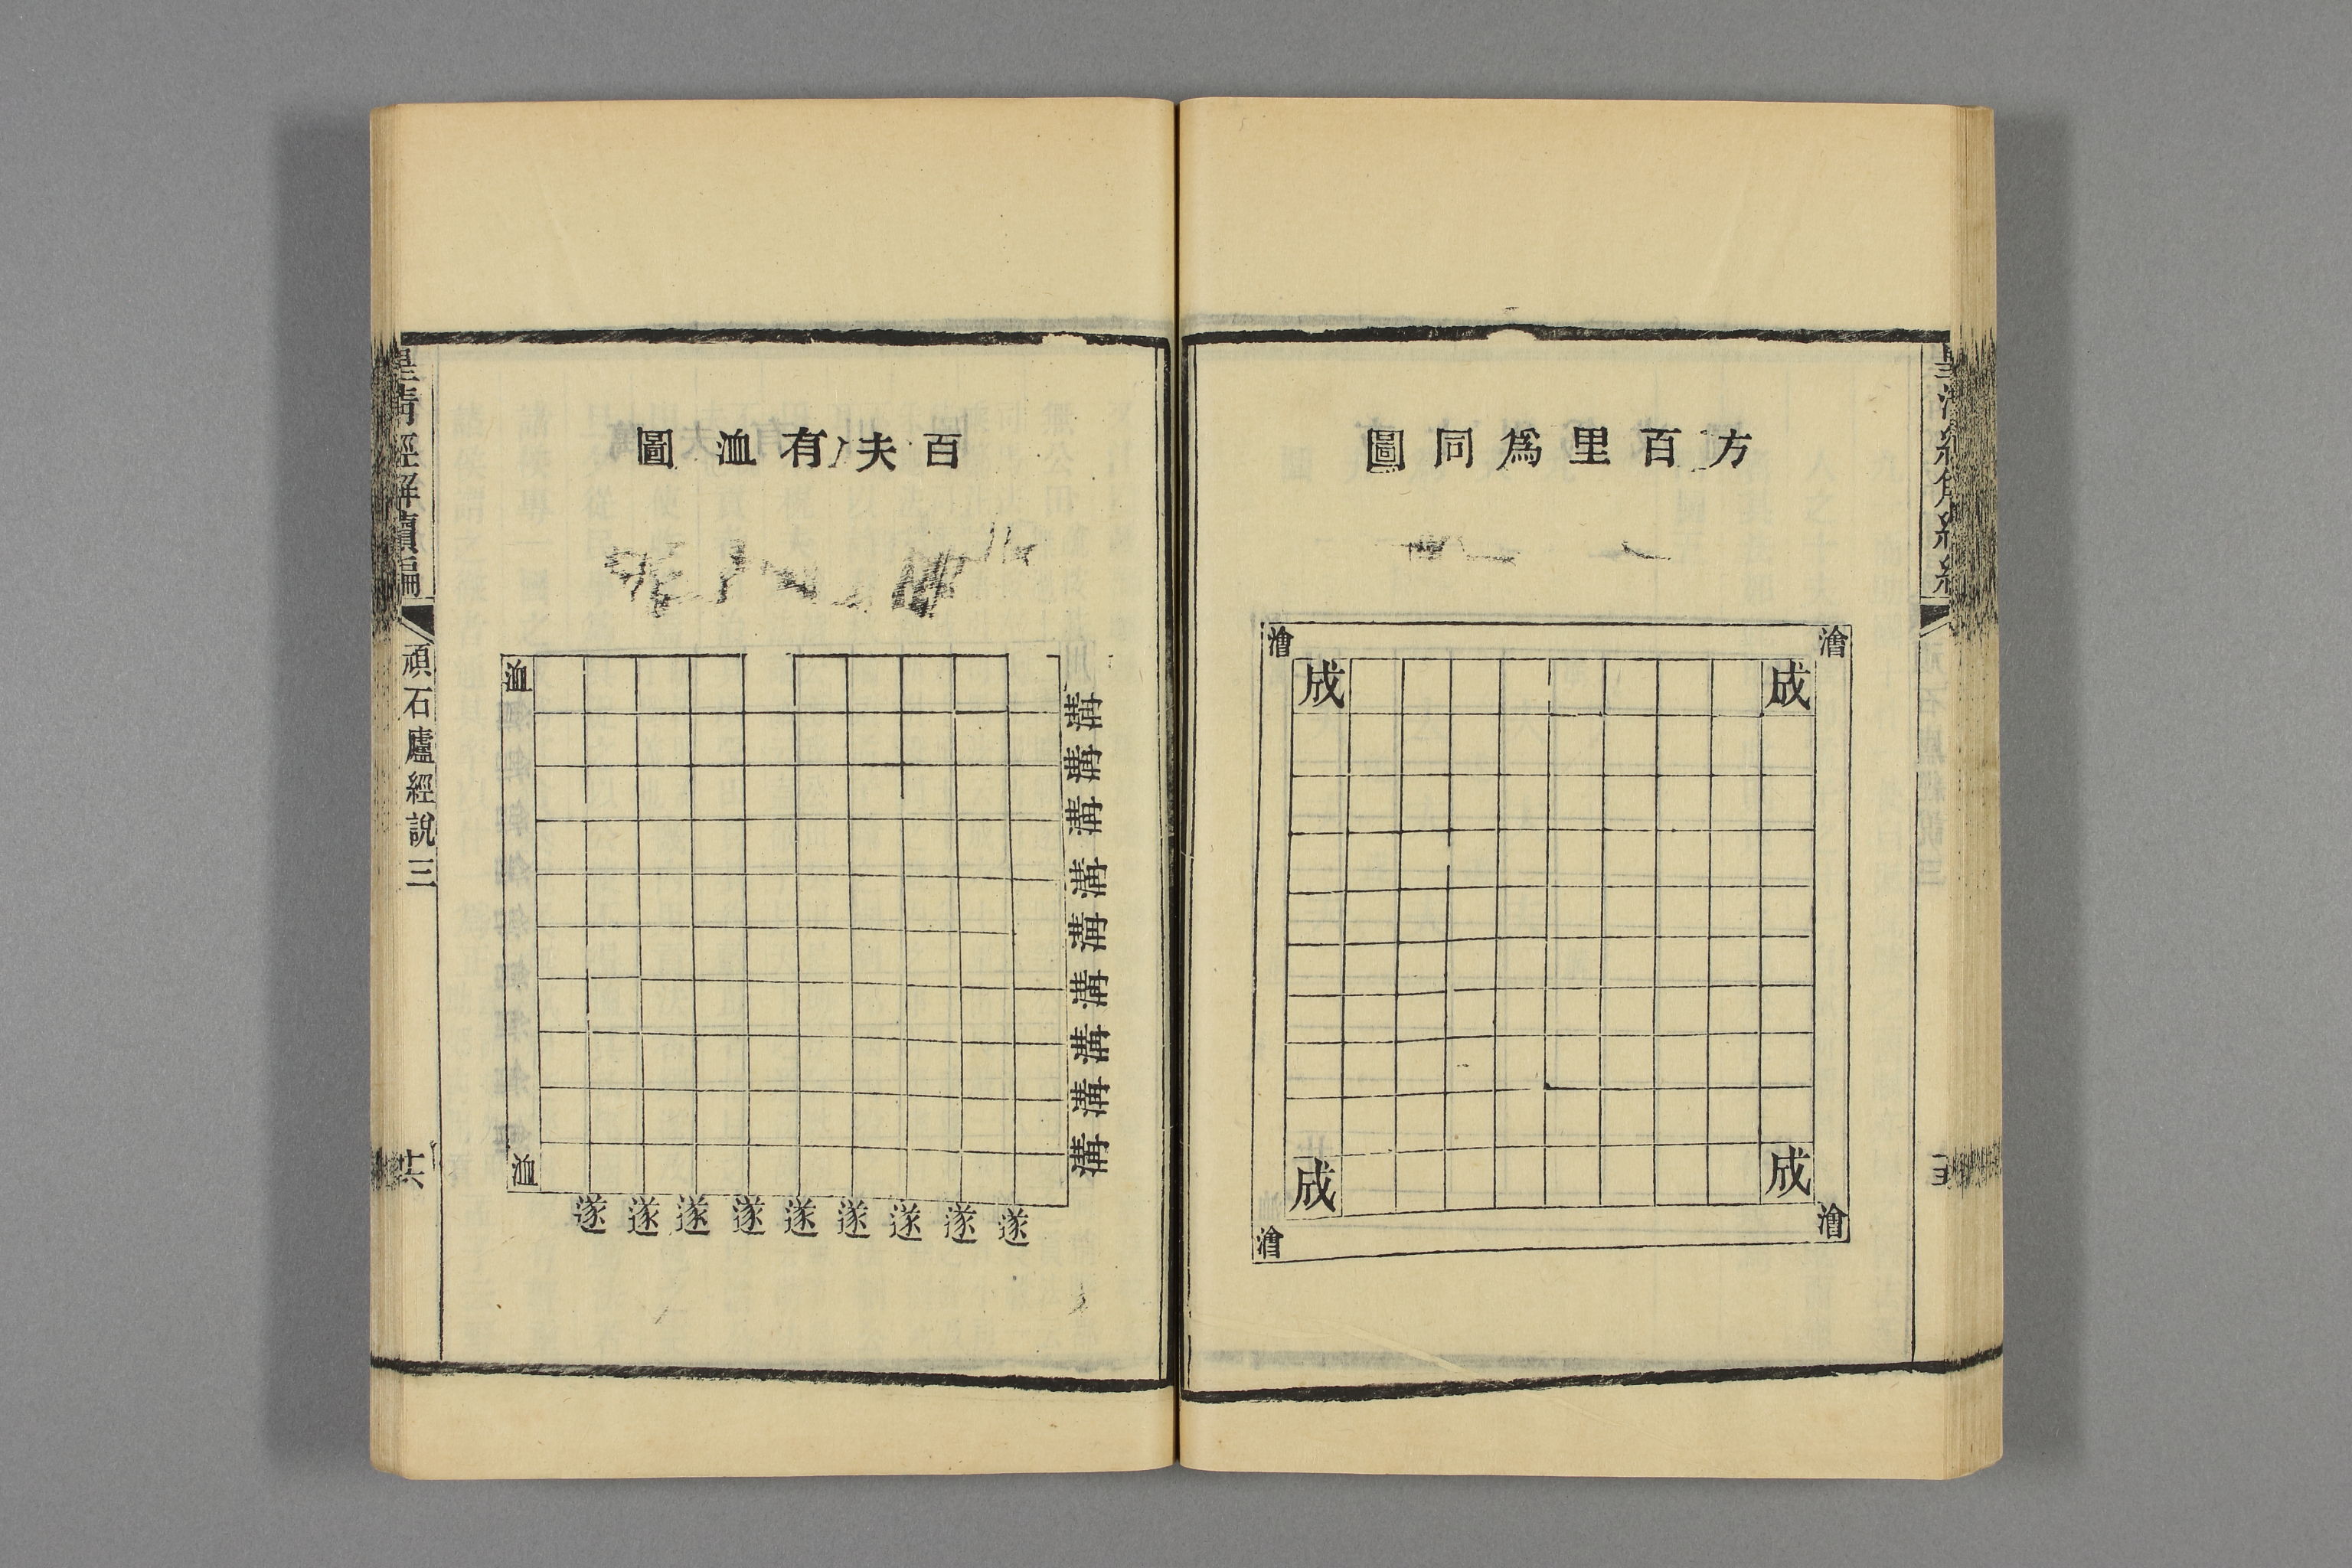 方百里爲同圖
澮 澮
成 成
成 成
澮 澮
百夫有洫圖
洫
溝
溝
溝
溝
溝
溝
溝
溝
溝
洫
遂 遂 遂 遂 遂 遂 遂 遂 遂
皇清經解續編
頑石廬經說三